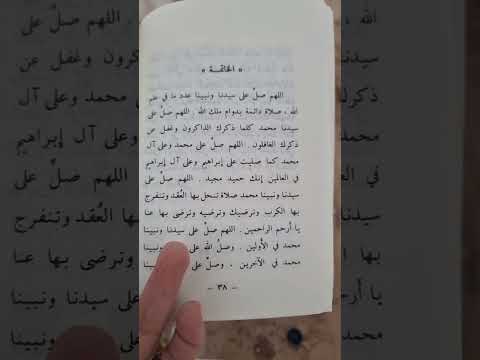 « الخاتمـــة »
اللهم صلِّ على سيدنا ونبينا عدد ما في علم
الله ، صلاة دائمة بدوام ملك الله . اللهم صلِّ على
سيدنا محمد كلما ذكرك الذاكرون وغفل عن
ذكرك الغافلون . اللهم صلِّ على محمد وعلى آل
محمد كما صليت على إبراهيم وعلى آل إبراهيم
في العالمين إنك حميد مجيد . اللهم صلِّ على
سيدنا ونبينا محمد صلاة تنحل بها العُقد وتنفرج
بها الكرب وترضيك وترضيه وترضى بها عنا
يا أرحم الراحمين . اللهم صلِّ على سيدنا ونبينا
محمد في الأولين . وصلِّ الله على ونبينا
محمد في الآخرين . وصلِّ على
سيدنا ونبينا
وترضى بها عنا
يا أر
— ٣٨ —